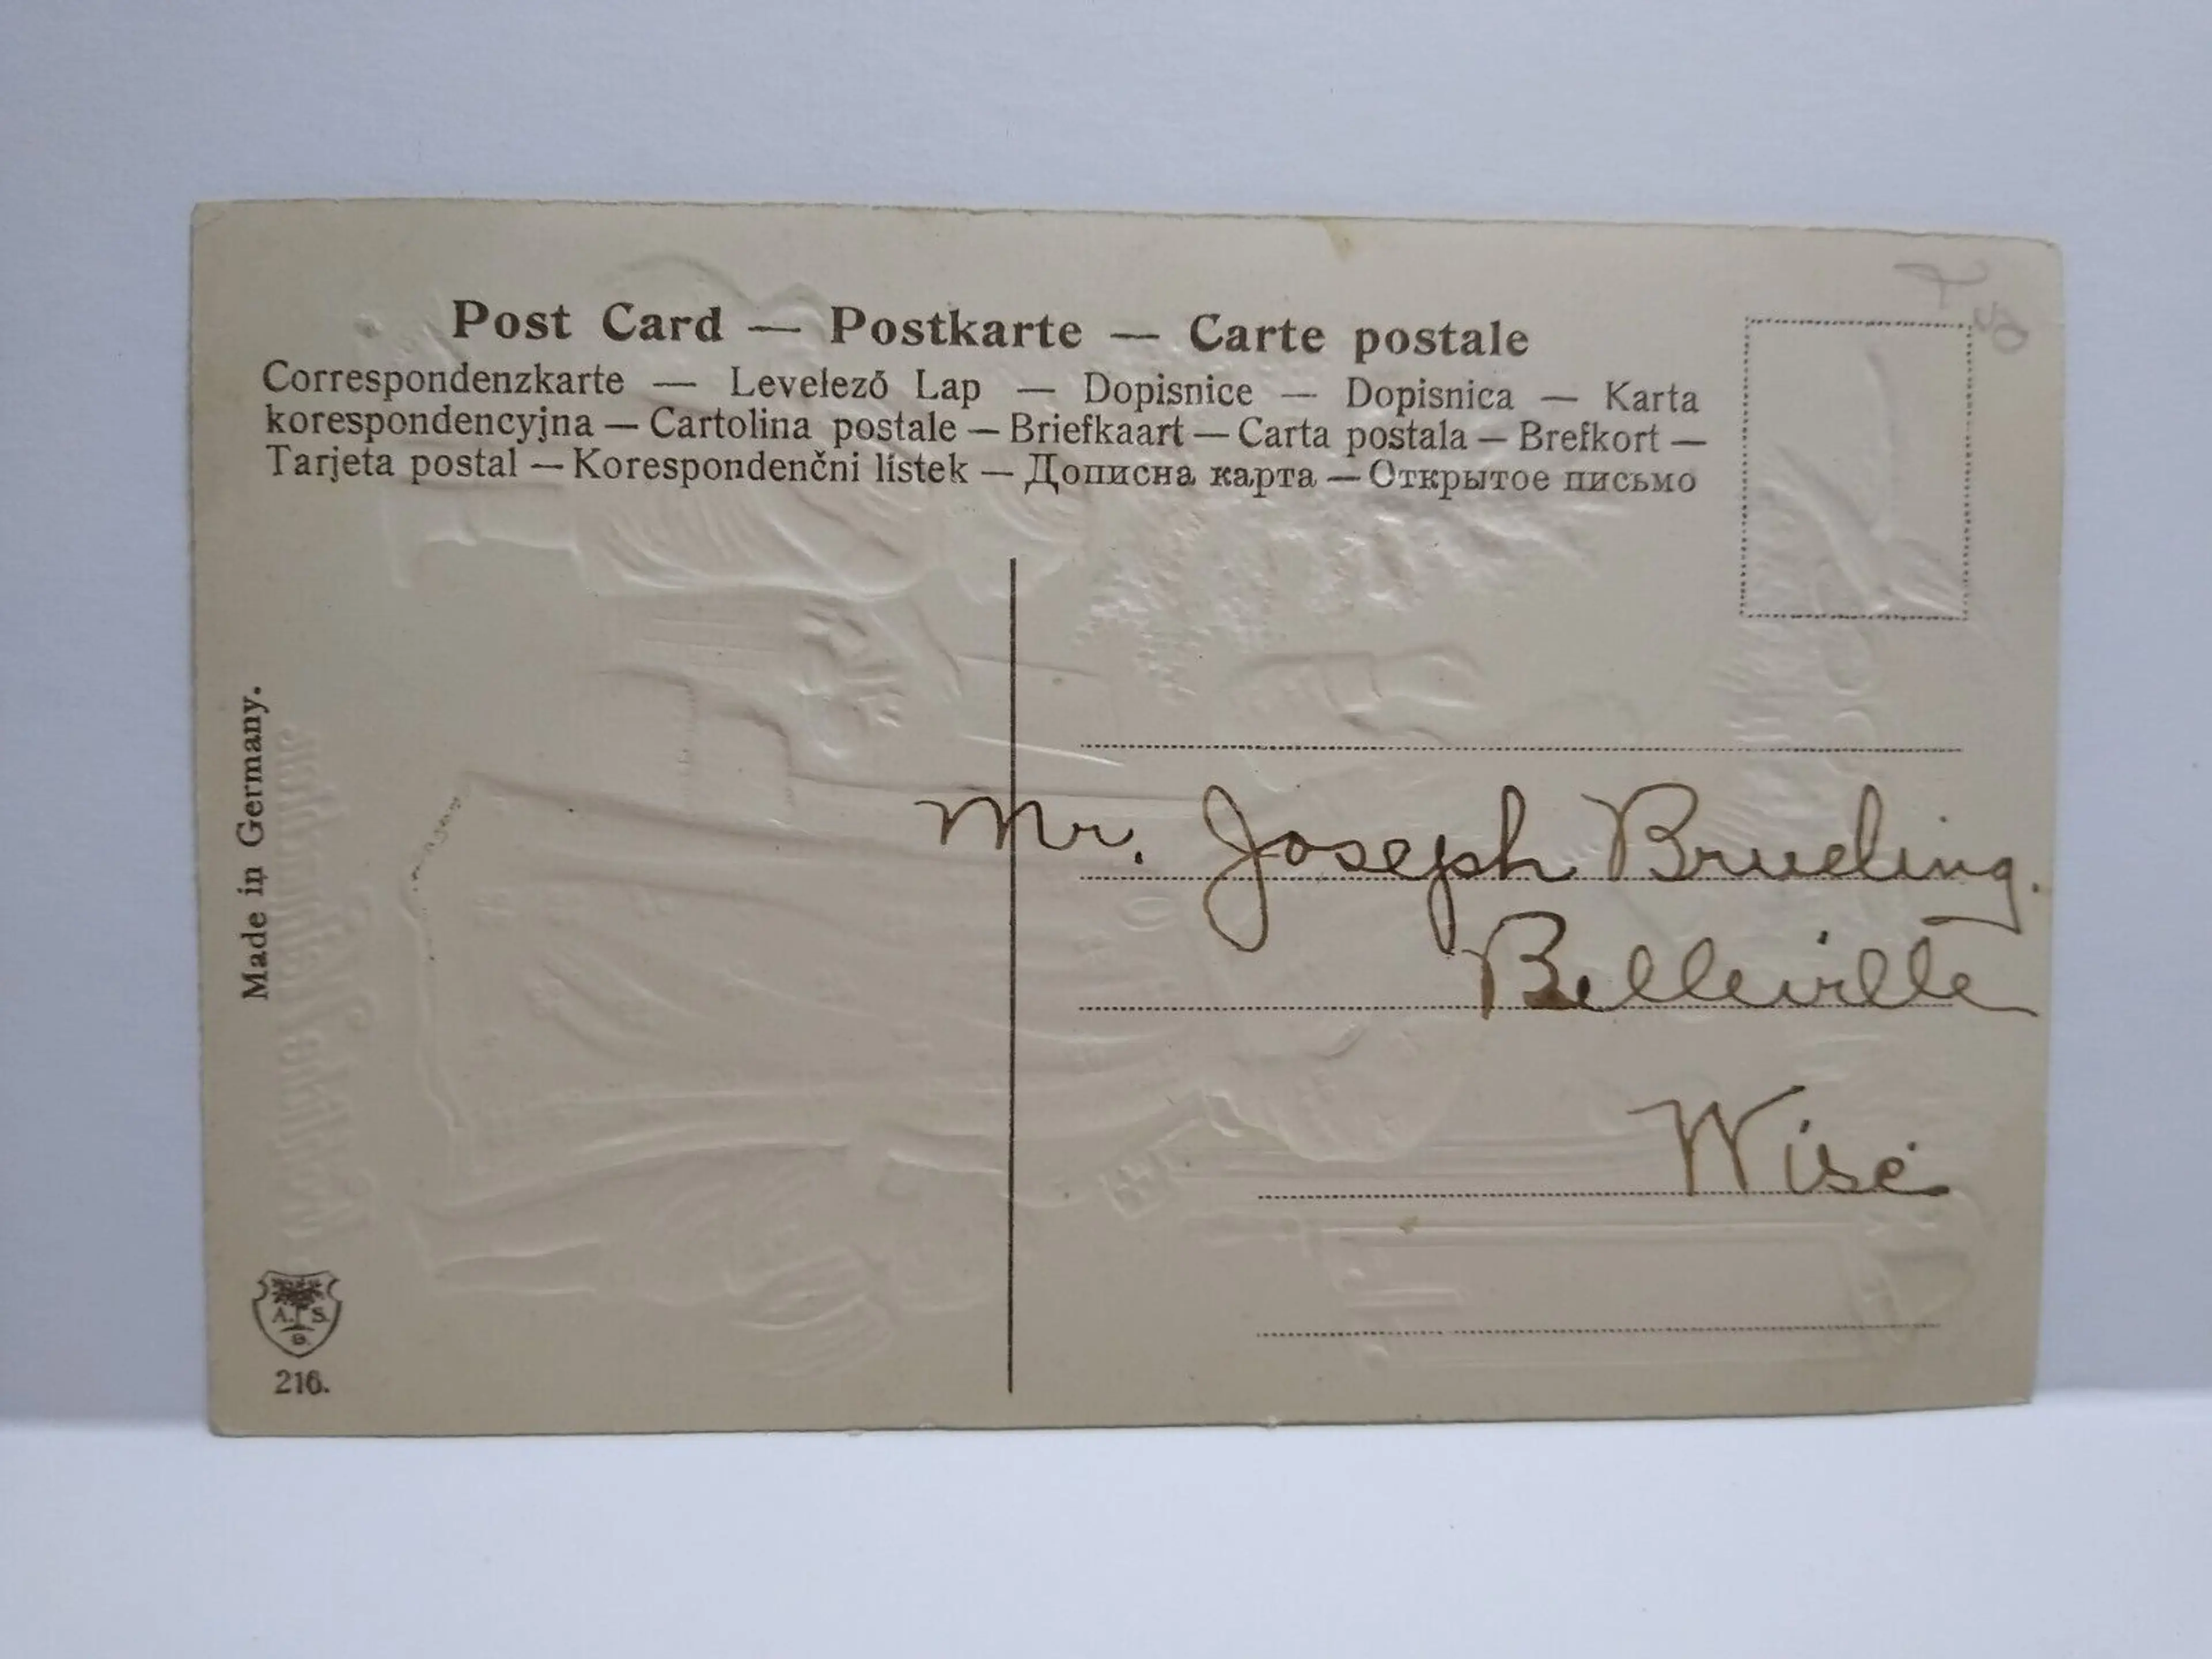 Post Card — Postkarte — Carte postale
Correspondenzkarte — Levelező Lap — Dopisnice — Dopisnica — Karta
korespondencyjna — Cartolina postale — Briefkaart — Carta postala — Brefkort —
Tarjeta postal — Korespondenčni lístek — Дописна карта — Открытое письмо
Made in Germany.
Mr. Joseph Brueling.
Belleville
Wisc
A. S.
B.
216.